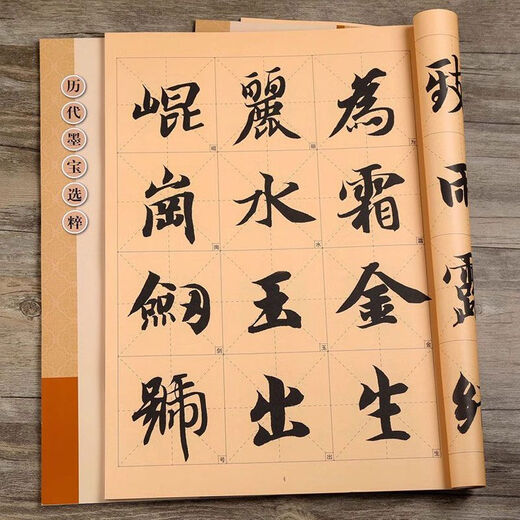 历代墨宝选粹
雨露
為霜金生
麗水玉出
崐崗劔號